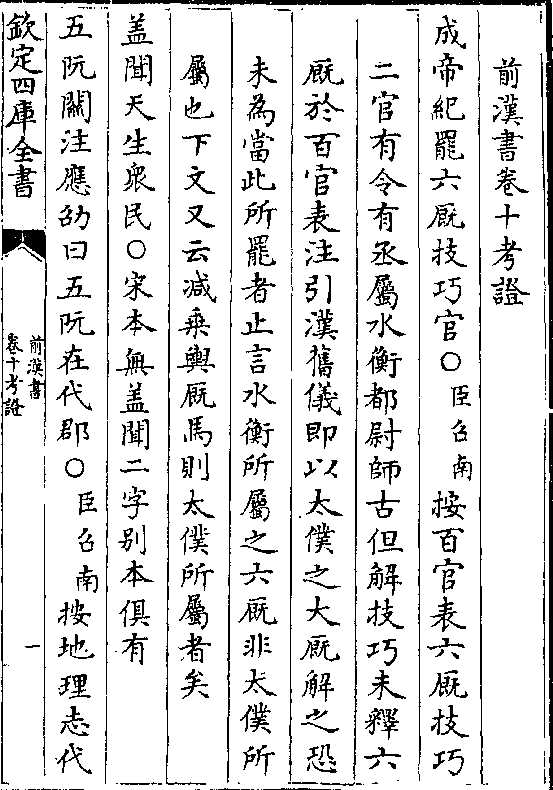 前漢書卷十考證
成帝紀罷六厩技巧官○臣召南按百官表六厩技巧
二官有令有丞屬水衡都尉師古但解技巧未釋六
厩於百官表注引漢舊儀即以太僕之大厩解之恐
未為當此所罷者止言水衡所屬之六厩非太僕所
屬也下文又云減乗輿厩馬則太僕所屬者矣
盖聞天生衆民○宋本無盖聞二字别本俱有
五阮關注應劭曰五阮在代郡○臣召南按地理志代
欽定四庫全書
前漢書
卷十考證
一